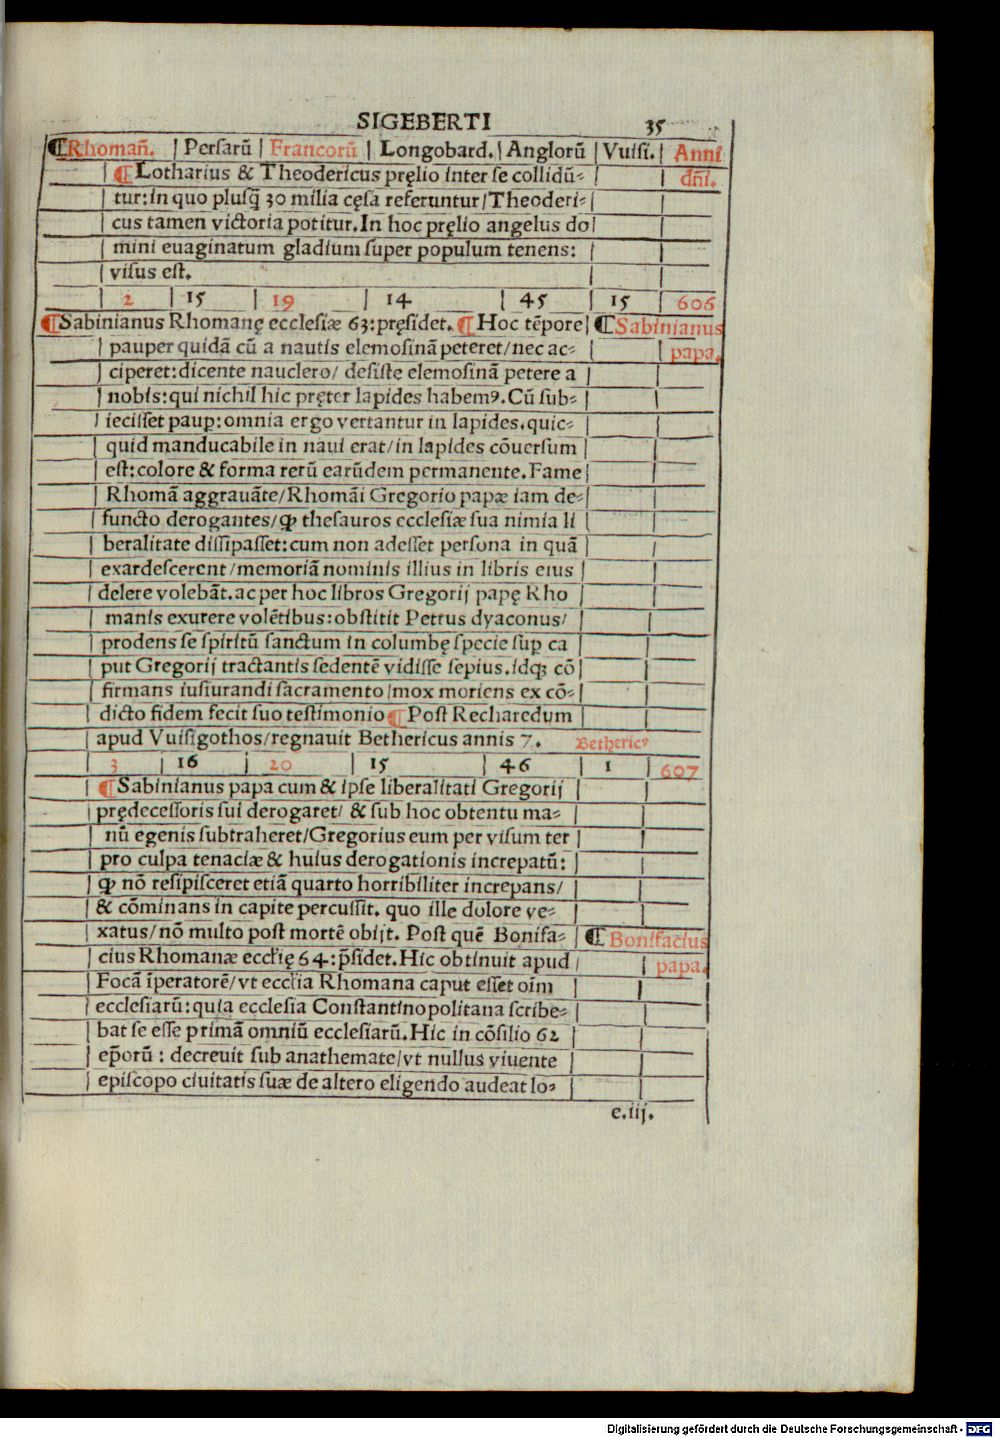 SIGEBERTI 35
¶Rhomañ. | Persarũ | Francorũ | Longobard. | Anglorũ | Vuisi. | Anni
¶Lotharius & Theodericus pręlio inter se collidũ- dñi.
tur:in quo plusq̃ 30 milia cęsa referuntur/Theoderi-
cus tamen victoria potitur.In hoc pręlio angelus do
mini euaginatum gladium super populum tenens:
visus est.
2 | 15 | 19 | 14 | 45 | 15 | 606
¶Sabinianus Rhomanę ecclesiæ 63:pręsidet.¶Hoc tẽpore ¶Sabinianus
pauper quidã cũ a nautis elemosinã peteret/nec ac- papa.
ciperet:dicente nauclero/ desiste elemosinã petere a
nobis:qui nichil hic pręter lapides habemꝰ.Cũ sub-
iecisset paup:omnia ergo vertantur in lapides.quic-
quid manducabile in naui erat/in lapides cõuersum
est:colore & forma rerũ earũdem permanente.Fame
Rhomã aggrauãte/Rhomãi Gregorio papæ iam de-
functo derogantes/ꝙ thesauros ecclesiæ sua nimia li
beralitate dissipasset:cum non adesset persona in quã
exardescerent/memoriã nominis illius in libris eius
delere volebãt.ac per hoc libros Gregorij papę Rho
manis exurere volẽtibus:obstitit Petrus dyaconus/
prodens se spiritũ sanctum in columbę specie suꝑ ca
put Gregorij tractantis sedentẽ vidisse sepius.idqꝫ cõ
firmans iusiurandi sacramento/mox moriens ex cõ-
dicto fidem fecit suo testimonio¶Post Recharedum
apud Vuisigothos/regnauit Bethericus annis 7. Bethericꝰ
3 | 16 | 20 | 15 | 46 | 1 | 607
¶Sabinianus papa cum & ipse liberalitati Gregorij
prędecessoris sui derogaret/ & sub hoc obtentu ma-
nũ egenis subtraheret/Gregorius eum per visum ter
pro culpa tenaciæ & huius derogationis increpatũ:
ꝙ nõ resipisceret etiã quarto horribiliter increpans/
& cõminans in capite percussit. quo ille dolore ve-
xatus/nõ multo post mortẽ obijt. Post quẽ Bonifa- ¶Bonifacius
cius Rhomanæ eccłię 64:p̃sidet.Hic obtinuit apud papa.
Focã ĩperatorẽ/vt eccłia Rhomana caput esset oĩm
ecclesiarũ:quia ecclesia Constantinopolitana scribe-
bat se esse primã omniũ ecclesiarũ.Hic in cõsilio 62
ep̃orũ : decreuit sub anathemate/vt nullus viuente
episcopo ciuitatis suæ de altero eligendo audeat lo-
e.iij.
Digitalisierung gefördert durch die Deutsche Forschungsgemeinschaft - DFG